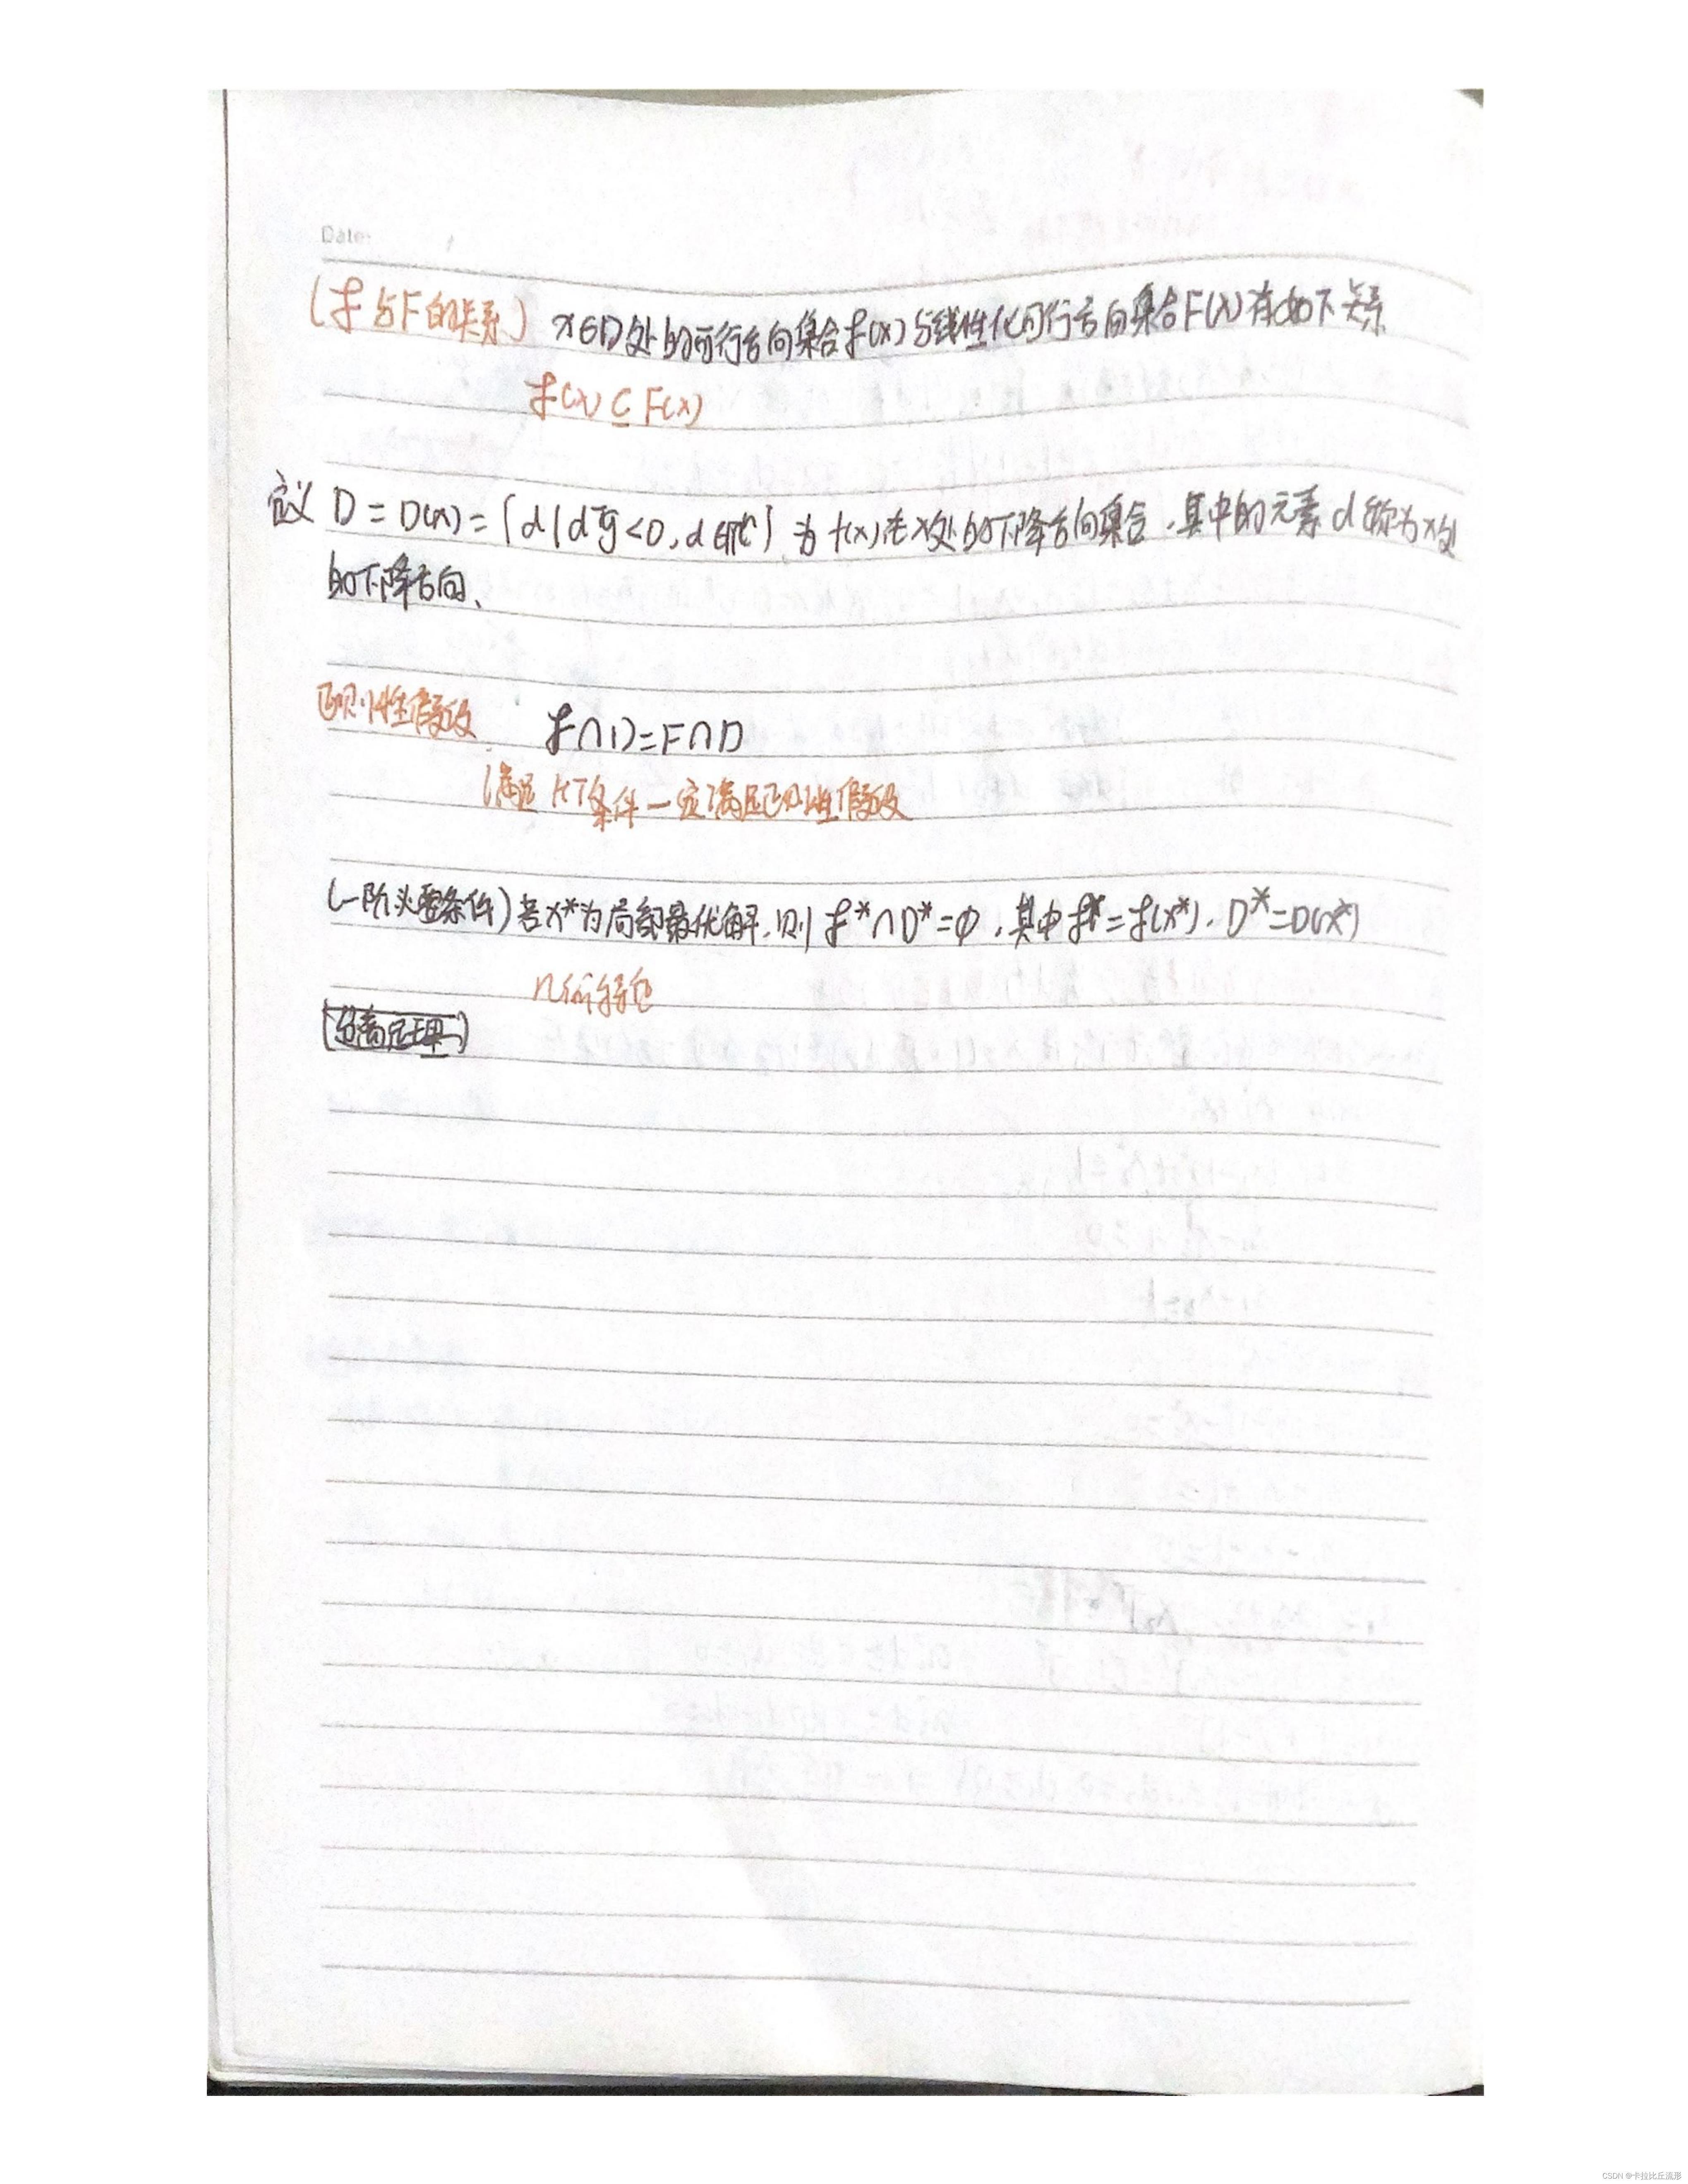 Date:
(ℱ与F的关系) x∈D处的可行方向集合ℱ(x)与线性化可行方向集合F(x)有如下关系
ℱ(x)⊆F(x)
定义 D=D(x)={d|dᵀg<0,d∈ℝⁿ}为f(x)在x处的下降方向集合,其中的元素d称为x处
的下降方向、
正则性假设 ℱ∩D=F∩D
(满足KT条件一定满足正则性假设
(一阶必要条件)若x*为局部最优解,则ℱ*∩D*=∅,其中ℱ*=ℱ(x*),D*=D(x*)
几何特色
(分离定理)
CSDN @卡拉比丘流形